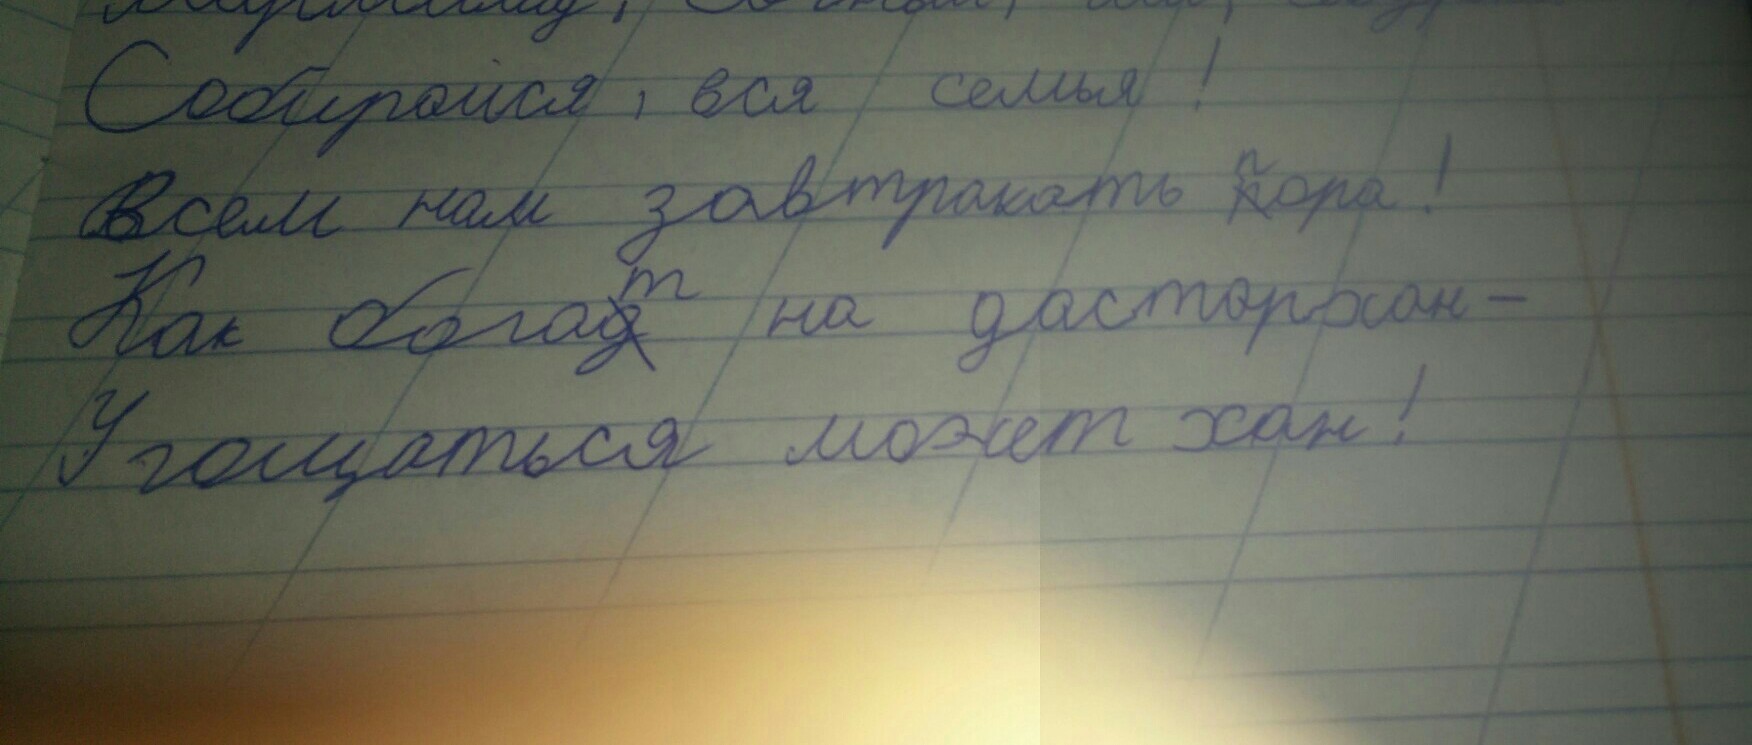 Собирайся, вся семья!
Всем нам завтракать пора!
Как богат на дастархан-
Угощаться может хан!